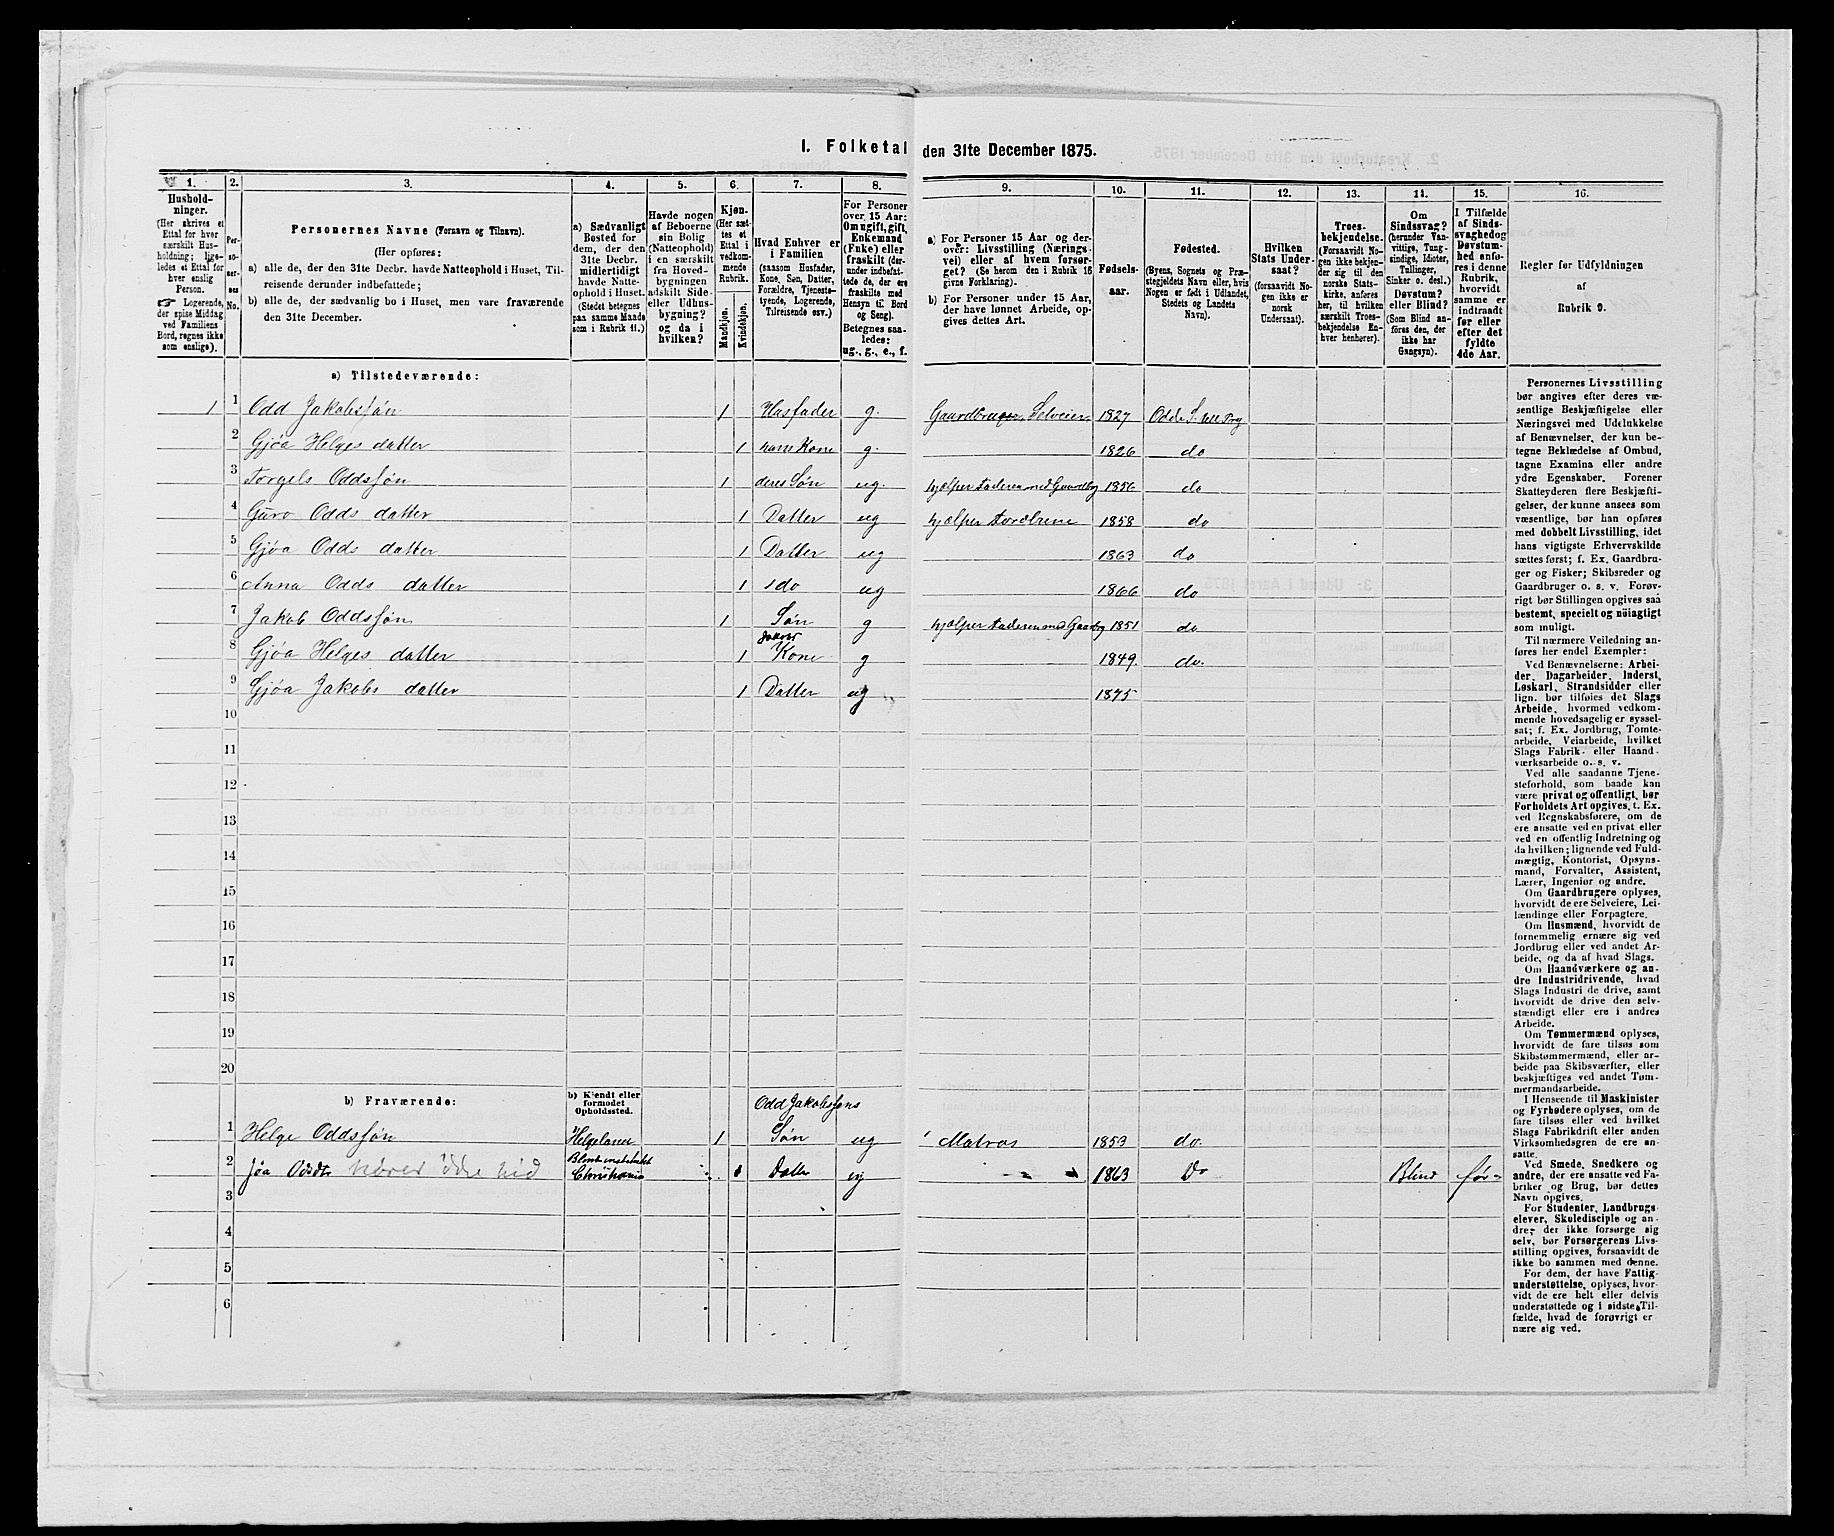 I. Folketal den 31te December 1875.
1. 2. 3. 4. 5. 6. 7. 8. 9. 10. 11. 12. 13. 14. 15. 16.
Hushold-
ninger.
(Her skrives et
Ettal for hver
særskilt Hus-
holdning; lige-
ledes et Ettal for
hver enslig
Person.
☞ Logerende,
der spise Middag
ved Familiens
Bord, regnes ikke
som enslige).
Per-
so-
ner-
nes
No.
Personernes Navne (Fornavn og Tilnavn).
(Her opføres:
a) alle de, der den 31te Decbr. havde Natteophold i Huset, Til-
reisende derunder indbefattede;
b) alle de, der sædvanlig bo i Huset, men vare fraværende
den 31te December.
a) Sædvanligt
Bosted for
dem, der den
31te Decbr.
midlertidigt
havde Natte-
ophold i Huset.
(Stedet betegnes
paa samme Maade
som i Rubrik 11.)
Havde nogen
af Beboerne
sin Bolig
(Natteophold)
i en særskilt
fra Hoved-
bygningen
adskilt Side-
eller Udhus-
bygning?
og da i
hvilken?
Kjøn.
(Her sæt-
tes et
Ettal i
vedkom-
mende
Rubrik.
Mandkjøn.
Kvindekjøn.
Hvad Enhver er
i Familien
(saasom Husfader,
Kone, Søn, Datter,
Forældre, Tjeneste-
tyende, Logerende,
Tilreisende osv.)
For Personer
over 15 Aar:
Om ugift, gift,
Enkemand
(Enke) eller
fraskilt (der-
under indbefat-
tede de, der ere
fraskilte med
Hensyn til Bord
og Seng).
Betegnes saa-
ledes:
ug., g., e., f.
a) For Personer 15 Aar og der-
over: Livsstilling (Nærings-
vei) eller af hvem forsør-
get? (Se herom den i Rubrik 16
givne Forklaring).
b) For Personer under 15 Aar,
der have lønnet Arbeide, op-
gives dettes Art.
Fødsels-
aar.
Fødested.
(Byens, Sognets og Præ-
stegjeldets Navn eller, hvis
Nogen er født i Udlandet,
Stedets og Landets
Navn).
Hvilken
Stats Under-
saat?
(forsaavidt No-
gen ikke er
norsk
Undersaat).
Troes-
bekjendelse.
(Forsaavidt No-
gen ikke bekjen-
der sig til den
norske Stats-
kirke, anføres
her, til hvilken
særskilt Troes-
bekjendelse En-
hver henhører).
Om
Sindssvag?
(herunder Van-
vittige, Idioter,
Tullinger,
Sinker o. desl.)
Døvstum?
eller Blind?
(Som Blind an-
føres den, der
ikke har
Gangsyn).
I Tilfælde
af Sinds-
svaghed og
Døvstum-
hed anfø-
res i denne
Rubrik,
hvorvidt
samme er
indtraadt
før eller
efter det
fyldte
4de Aar.
Regler for Udfyldningen
af
Rubrik 9.
a) Tilstedeværende:
1 1 Odd Jakobsføn 1 Husfader g. Gaardbruger, Selveier 1827 Odde S.
2 Gjøa Helges datter 1 hans Kone g. 1826 do
3 Torgels Oddsføn 1 deres Søn ug. hjælper Faderen med Gaardbrg 1856 do
4 Guro Odds datter 1 Datter ug hjælper Forældrene 1858 do
5 Gjøa Odds datter 1 Datter ug 1863 do
6 Anna Odds datter 1 do ug 1866 do
7 Jakob Oddsføn 1 Søn g hjælper Faderen med Gaardbrg 1851 do
8 Gjøa Helges datter 1 Jakobs Kone g 1849 do.
9 Gjøa Jakobs datter 1 Datter ug 1875
10
11
12
13
14
15
16
17
18
19
20
b) Fraværende:
b) Kjendt eller
formodet
Opholdssted.
Odd Jakobsføns
1 Helge Oddsføn Helgeland 1 Søn ug Matros 1853 do.
2 Jøa Oddsdtr hører ikke hid Christiania Datter ug 1863 Do Blind før
3
4
5
6
Personernes Livsstilling
bør angives efter deres væ-
sentlige Beskjæftigelse eller
Næringsvei med Udelukkelse
af Benævnelser, der kun be-
tegne Beklædelse af Ombud,
tagne Examina eller andre
ydre Egenskaber. Forener
Skatteyderen flere Beskjæfti-
gelser, der kunne ansees som
væsentlige, bør han opføres
med dobbelt Livsstilling, idet
hans vigtigste Erhvervskilde
sættes først; f. Ex. Gaardbru-
ger og Fisker; Skibsreder og
Gaardbruger o. s. v. Forøv-
rigt bør Stillingen opgives saa
bestemt, specielt og nøiagtigt
som muligt.
Til nærmere Veiledning an-
føres her endel Exempler:
Ved Benævnelserne: Arbei-
der, Dagarbeider, Inderst,
Løskarl, Strandsidder eller
lign. bør tilføies det Slags
Arbeide, hvormed vedkom-
mende hovedsagelig er syssel-
sat; f. Ex. Jordbrug, Tomte-
arbeide, Veiarbeide, hvilket
Slags Fabrik- eller Haand-
værksarbeide o. s. v.
Ved alle saadanne Tjene-
steforhold, som baade kan
være privat og offentligt, bør
Forholdets Art opgives, t. Ex.
ved Regnskabsførere, om de
ere ansatte ved en privat eller
ved en offentlig Indretning og
da hvilken; lignende ved Fuld-
mægtig, Kontorist, Opsyns-
mand, Forvalter, Assistent,
Lærer, Ingeniør og andre.
Om Gaardbrugere oplyses,
hvorvidt de ere Selveiere, Lei-
lændinge eller Forpagtere.
Om Husmænd, hvorvidt de
fornemmelig ernære sig ved
Jordbrug eller ved andet Ar-
beide, og da af hvad Slags.
Om Haandværkere og an-
dre Industridrivende, hvad
Slags Industri de drive, samt
hvorvidt de drive den selv-
stændigt eller ere i andres
Arbeide.
Om Tømmermænd oplyses,
hvorvidt de fare tilsøs som
Skibstømmermænd, eller ar-
beide paa Skibsværfter, eller
beskjæftiges ved andet Tøm-
mermandsarbeide.
I Henseende til Maskinister
og Fyrbødere oplyses, om de
fare tilsøs eller ved hvilket
Slags Fabrikdrift eller anden
Virksomhedsgren de ere an-
satte.
Ved Smede, Snedkere og
andre, der ere ansatte ved Fa-
briker og Brug, bør dettes
Navn opgives.
For Studenter, Landbrugs-
elever, Skoledisciple og an-
dre, der ikke forsørge sig
selv, bør Forsørgerens Livs-
stilling opgives, forsaavidt de
ikke bo sammen med denne.
For dem, der have Fattig-
understøttelse, oplyses, hvor-
vidt de ere helt eller delvis
understøttede og i sidste Til-
fælde, hvad de forøvrigt er
nære sig ved.